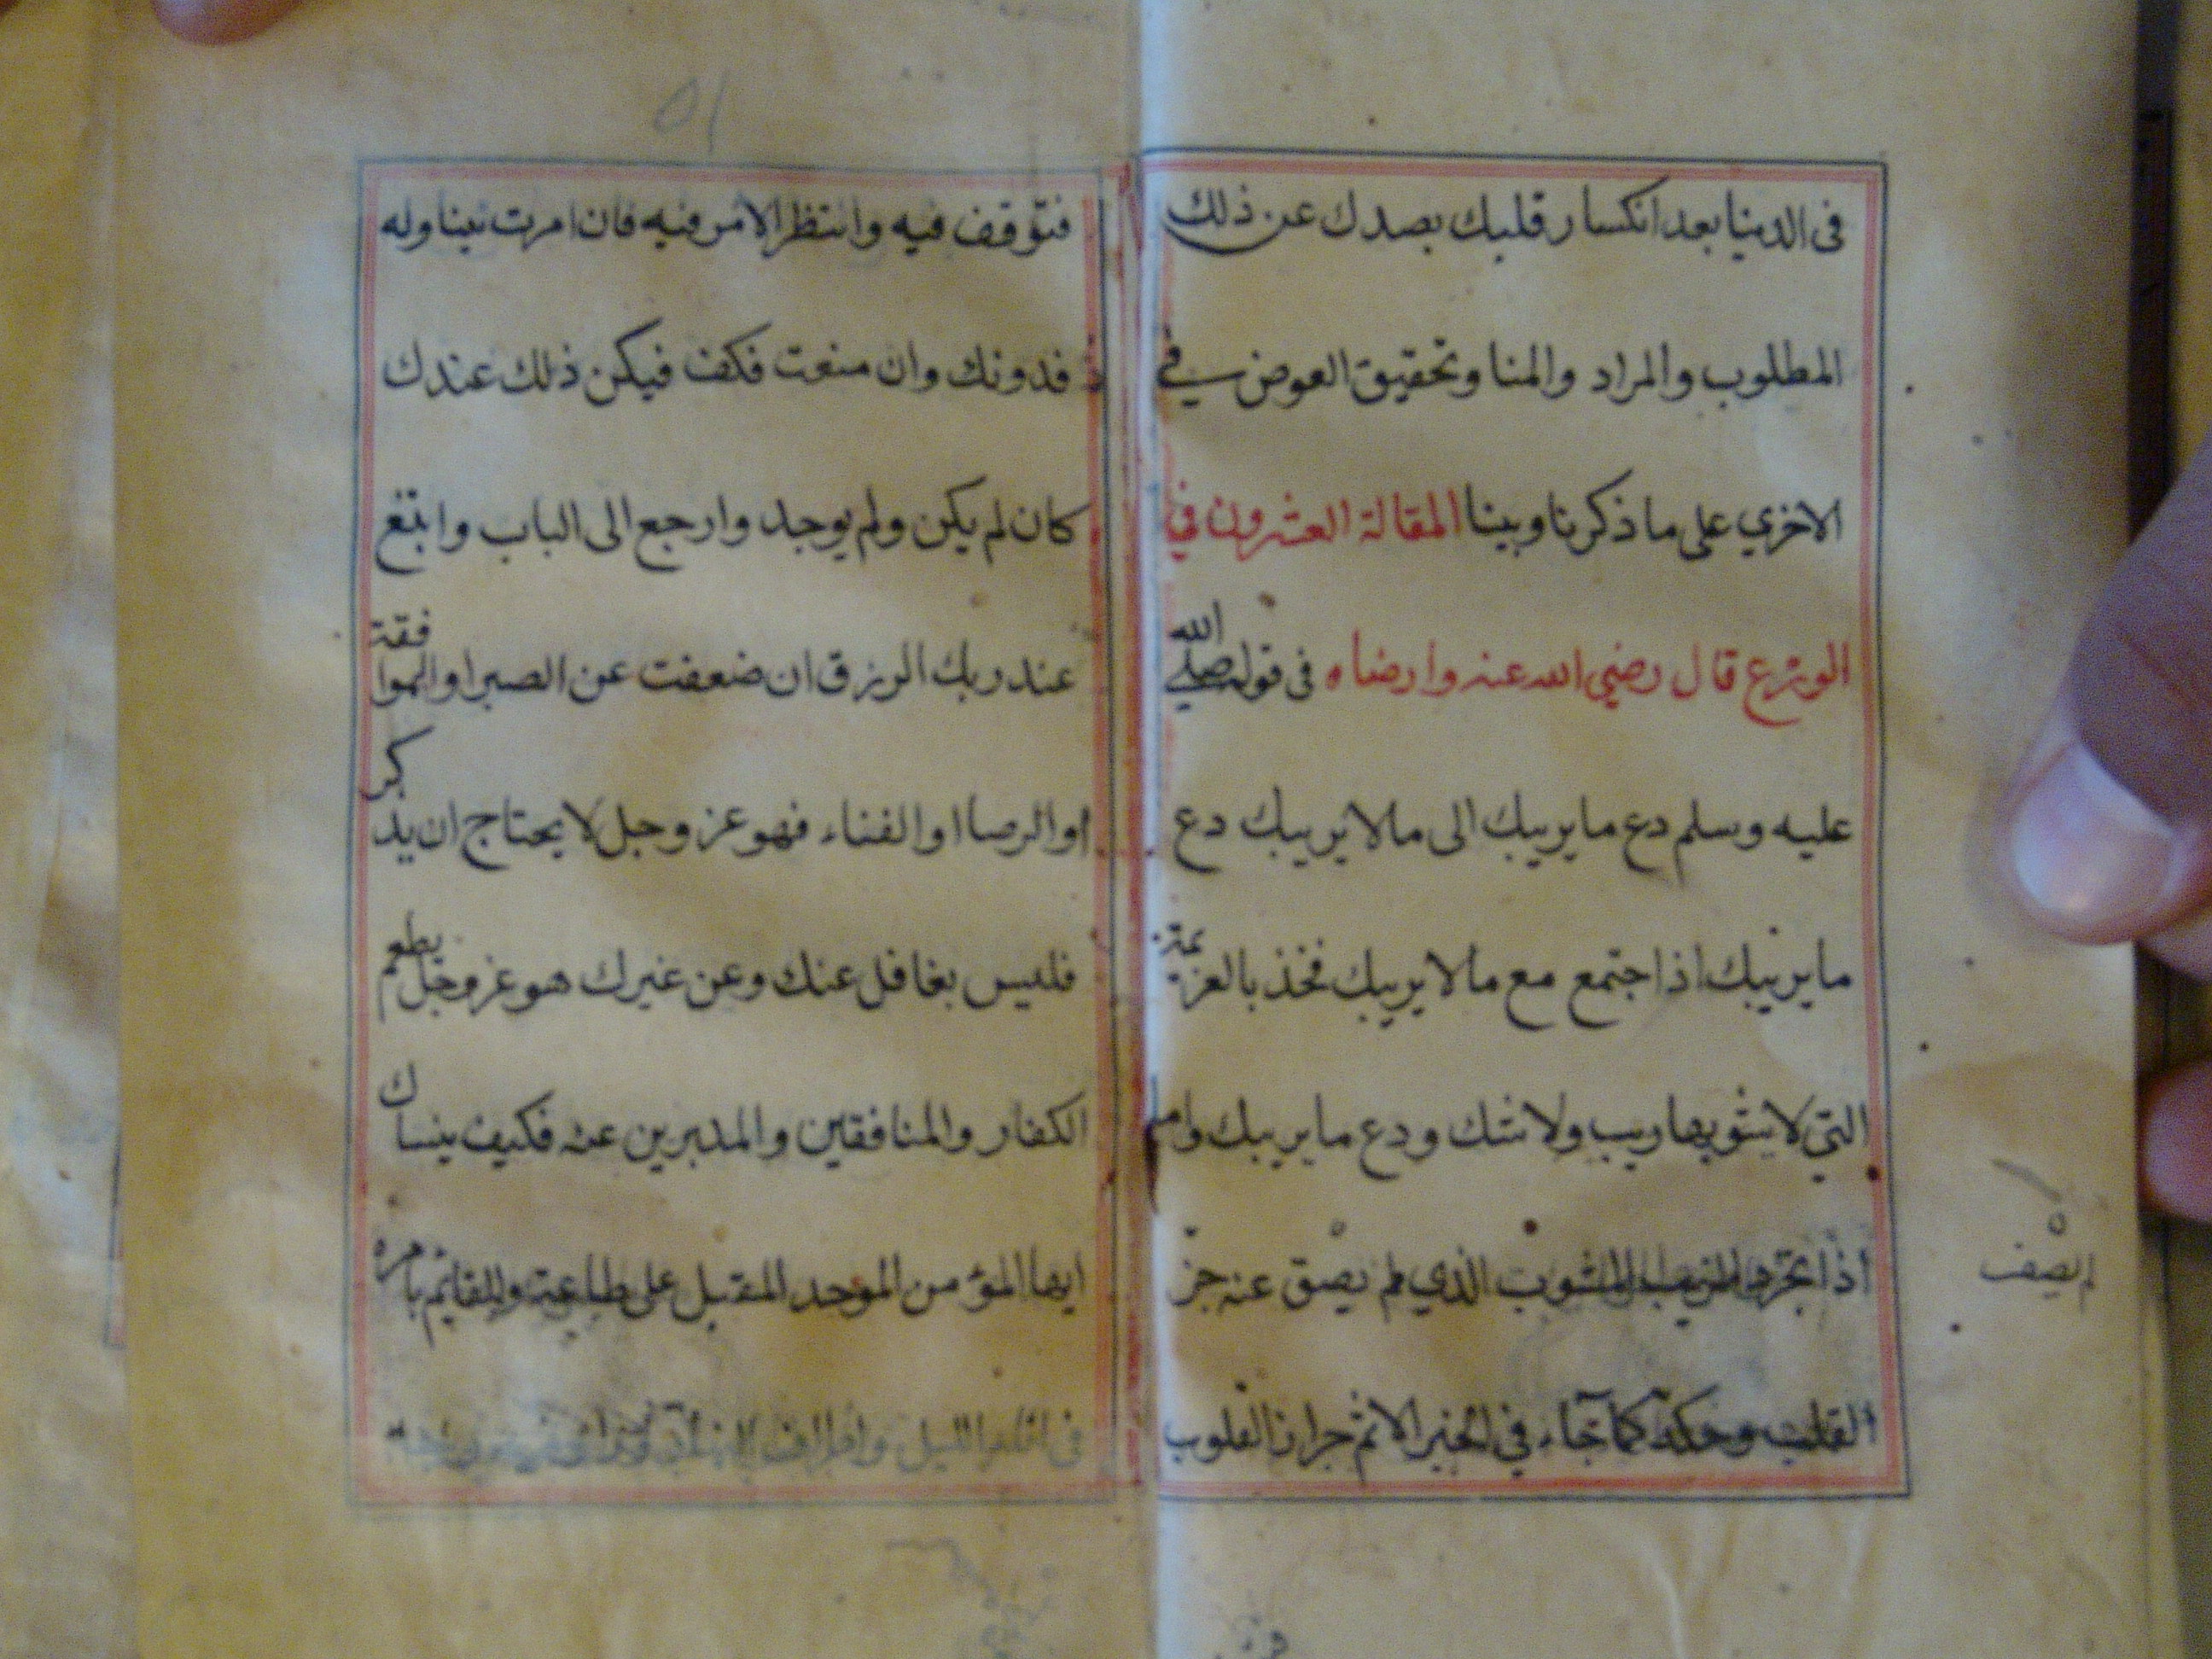 فى الدنيا بعد انكسار قلبك بصدك عن ذلك
المطلوب والمراد والمنا وتحقيق العوض في
الاخري على ما ذكرنا وبينا المقالة العشرون في
الورع قال رضي الله عنه وارضاه فى قوله صلي الله
عليه وسلم دع ما يريبك الى ما لا يريبك دع
ما يريبك اذا اجتمع مع ما لا يريبك فخذ بالعزيمة
التي لا يشوبها ريب ولا شك ودع ما يريبك واما
اذا تجرد المشوب الذي لم يصق عنه حز
القلب وحكه كما جاء في الخبر الاثم حزاز القلوب
لم يصف
٥١
فتوقف فيه وانتظر الامر فيه فان امرت بتناوله
فدونك وان منعت فكف فيكن ذلك عندك
كان لم يكن ولم يوجد وارجع الى الباب وابتغ
عند ربك الرزق ان ضعفت عن الصبر او الموافقة
او الرضا او الفناء فهو عز وجل لا يحتاج ان يذكر
فليس بغافل عنك وعن غيرك هو عز وجل يطعم
الكفار والمنافقين والمدبرين عنه فكيف ينساك
ايها المؤمن الموحد المقبل على طاعته والقائم بامره
فى الليل واطراف